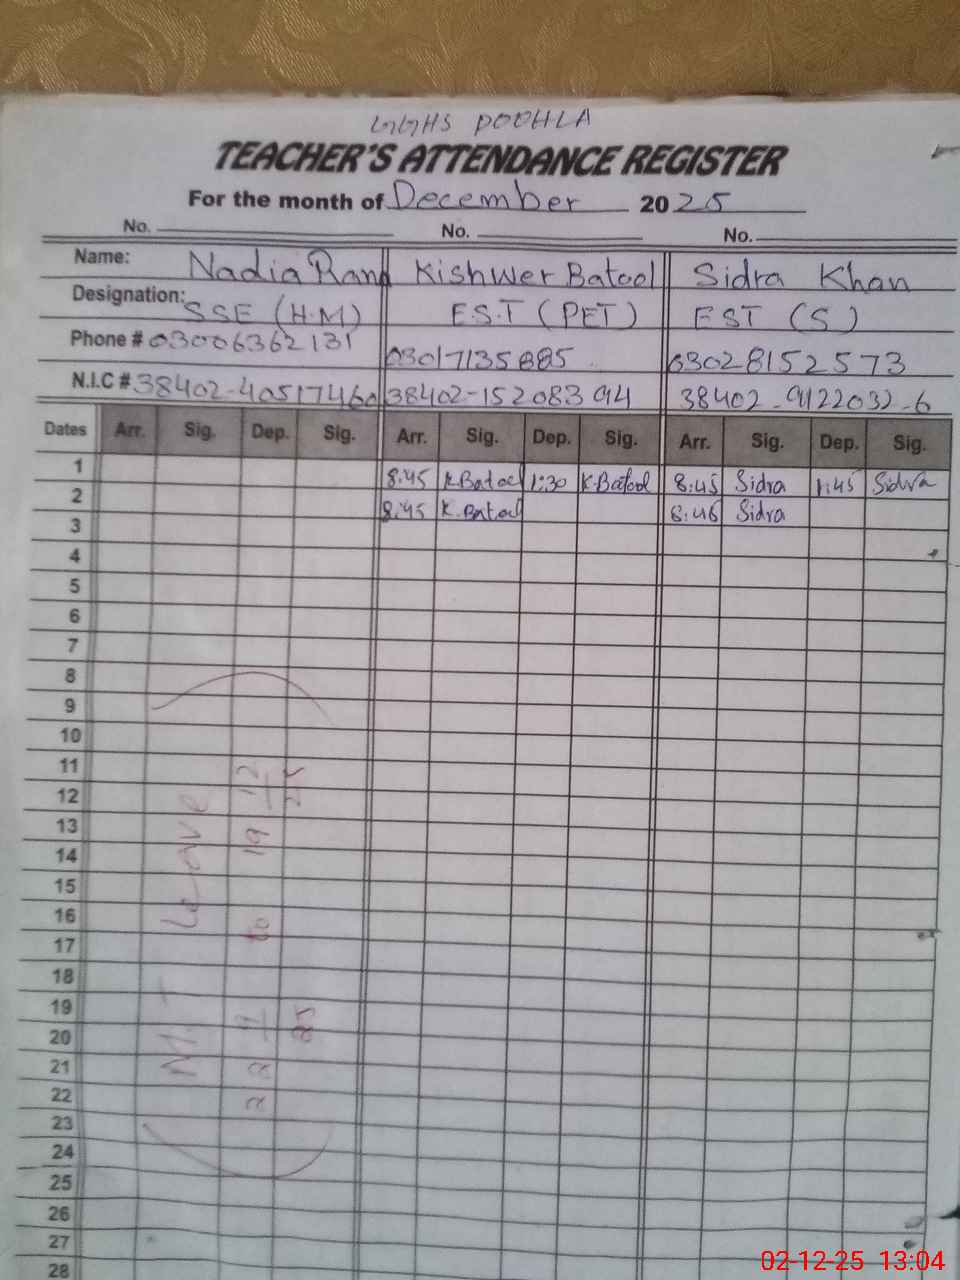 GGHS POOHLA
TEACHER'S ATTENDANCE REGISTER
For the month of December 2025
No. No. No.
Name: Nadia Rana Kishwer Batool Sidra Khan
Designation: SSE (H.M) E.S.T (PET) EST (S)
Phone # 03006362131 03017135885 03028152573
N.I.C # 38402-40517460 38402-15208394 38402-9122032-6
Dates Arr. Sig. Dep. Sig. Arr. Sig. Dep. Sig. Arr. Sig. Dep. Sig.
1 8:45 K.Batool 1:30 K.Batool 8:45 Sidra 1:45 Sidra
2 8:45 K.Batool 8:46 Sidra
3
4
5
6
7
8
9
10
11
12
13
14
15
16
17
18
19
20
21
22
23
24
25
26
27
28
Leave
to 19 12 25
02-12-25 13:04